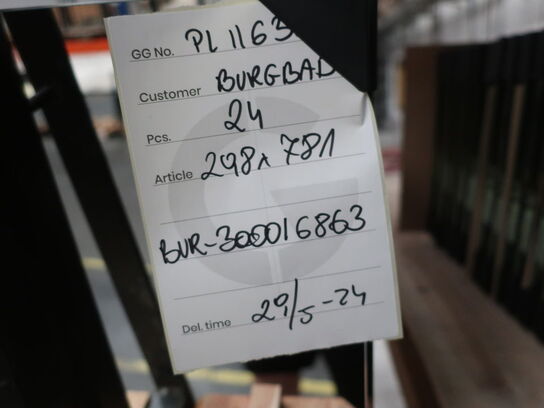 GG No. PL 1163
Customer BURGBAD
Pcs. 24
Article 298x781
BUR-300016863
Del. time 29/5-24